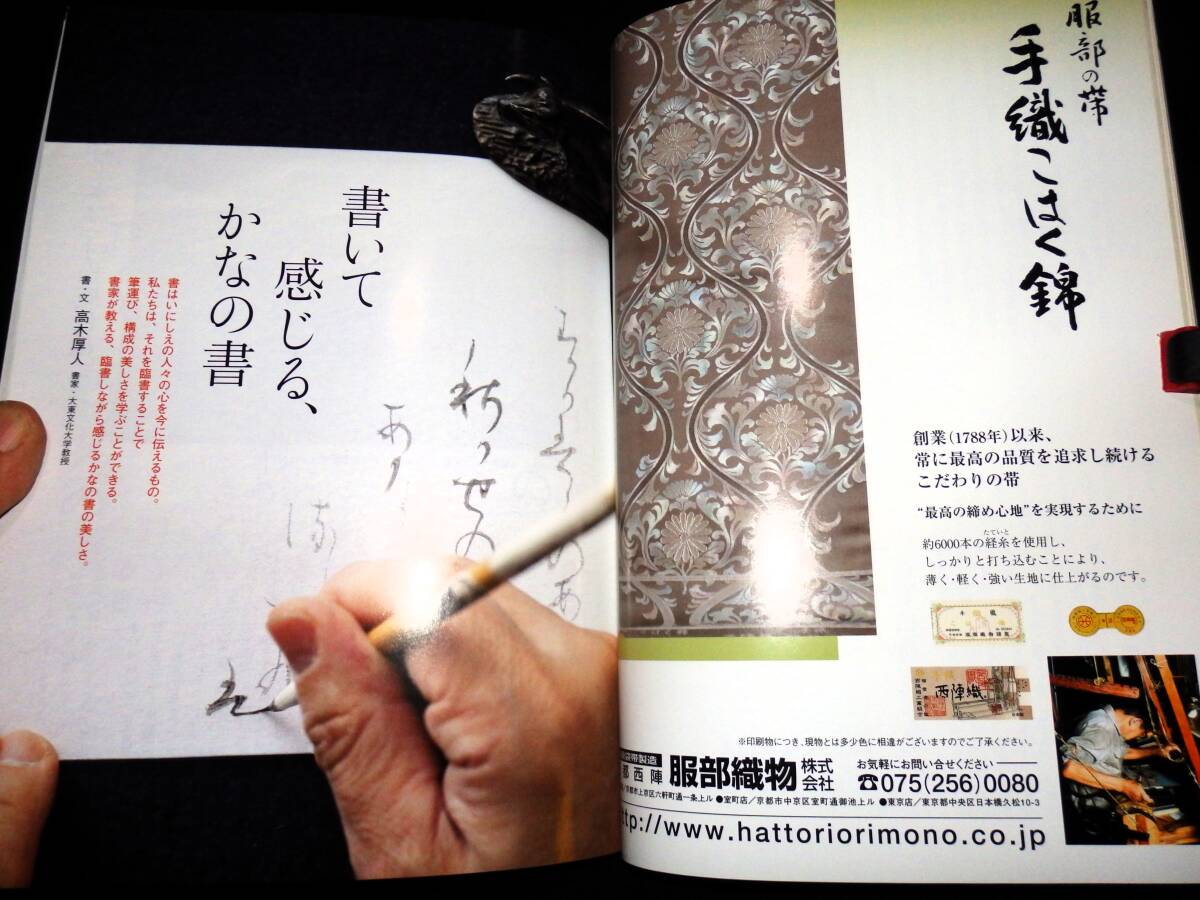 服部の帯
手織こはく錦
創業（1788年）以来、
常に最高の品質を追求し続ける
こだわりの帯
“最高の締め心地”を実現するために
たていと
約6000本の経糸を使用し、
しっかりと打ち込むことにより、
薄く・軽く・強い生地に仕上がるのです。
西陣織
※印刷物につき、現物とは多少色に相違がございますのでご了承ください。
袋帯製造
都西陣
服部織物
株式
会社
お気軽にお問い合せください
☎075(256)0080
/京都市上京区六軒町通一条上ル ●室町店/京都市中京区室町通御池上ル ●東京店/東京都中央区日本橋久松10-3
http://www.hattoriorimono.co.jp
書いて
感じる、
かなの書
書はいにしえの人々の心を今に伝えるもの。
私たちは、それを臨書することで
筆運び、構成の美しさを学ぶことができる。
書家が教える、臨書しながら感じるかなの書の美しさ。
書・文 高木厚人 書家・大東文化大学教授